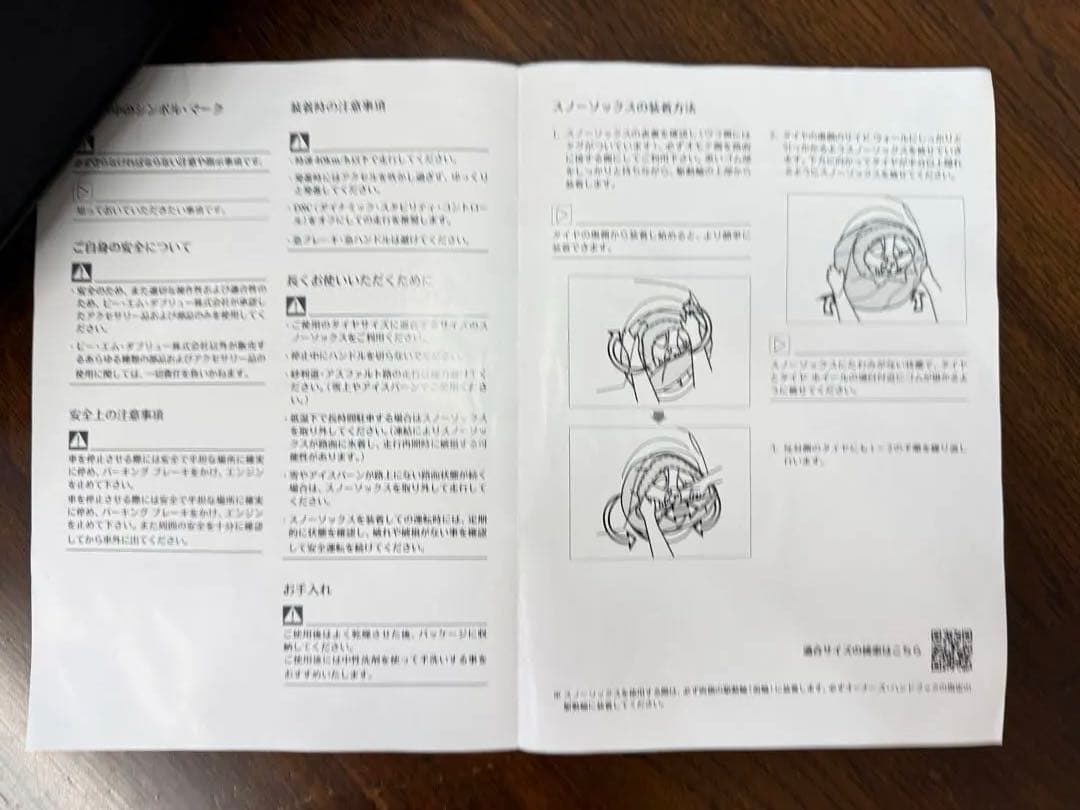 中のシンボル・マーク
必ず守らなければならない注意や指示事項です。
知っておいていただきたい事項です。
ご自身の安全について
・安全のため、また適切な操作性および適合性の
ため、ビー・エム・ダブリュー株式会社が承認し
たアクセサリー品および部品のみを使用してく
ださい。
・ビー・エム・ダブリュー株式会社以外が販売す
るあらゆる種類の部品およびアクセサリー品の
使用に関しては、一切責任を負いかねます。
安全上の注意事項
車を停止させる際には安全で平坦な場所に確実
に停め、パーキング ブレーキをかけ、エンジン
を止めて下さい。
車を停止させる際には安全で平坦な場所に確実
に停め、パーキング ブレーキをかけ、エンジン
を止めて下さい。また周囲の安全を十分に確認
してから車外に出てください。
装着時の注意事項
・時速40km/h以下で走行してください。
・発進時にはアクセルを吹かし過ぎず、ゆっくり
と発進してください。
・DSC(ダイナミック・スタビリティ・コントロー
ル)をオフにしての走行を推奨します。
・急ブレーキ・急ハンドルは避けてください。
長くお使いいただくために
・ご使用のタイヤサイズに適合するサイズのス
ノーソックスをご利用ください。
・停止中にハンドルを切らないでください。
・砂利道・アスファルト路の走行は
ださい。(雪上やアイスバーンでご使用くださ
い。)
・低温下で長時間駐車する場合はスノーソックス
を取り外してください。(凍結によりスノーソッ
クスが路面に氷着し、走行再開時に破損する可
能性があります。)
・雪やアイスバーンが路上にない路面状態が続く
場合は、スノーソックスを取り外して走行して
ください。
・スノーソックスを装着しての運転時には、定期
的に状態を確認し、破れや破損がない事を確認
して安全運転を続けてください。
お手入れ
ご使用後はよく乾燥させた後、パッケージに収
納してください。
ご使用後には中性洗剤を使って手洗いする事を
おすすめいたします。
スノーソックスの装着方法
1. スノーソックスの表裏を確認し(ウラ側には
タグがついています)、必ずオモテ側を路面
に接する側にしてご利用下さい。黒いゴム部
をしっかりと持ちながら、駆動輪の上部から
装着します。
タイヤの裏側から装着し始めると、より簡単に
装着できます。
2. タイヤの裏側のサイド ウォールにしっかりと
引っかかるようスノーソックスを被せていき
ます。下方に向かってタイヤが半分以上隠れ
るようにスノーソックスを被せてください。
スノーソックスにたわみがない状態で、タイヤ
とタイヤ ホイールの境目付近にゴムが掛かるよ
うに被せてください。
3. 反対側のタイヤにも1~2の手順を繰り返し
行います。
適合サイズの検索はこちら
※ スノーソックスを使用する際は、必ず両側の駆動輪(前輪)に装着します。必ずオーナーズ・ハンドブックの指定の
駆動輪に装着してください。